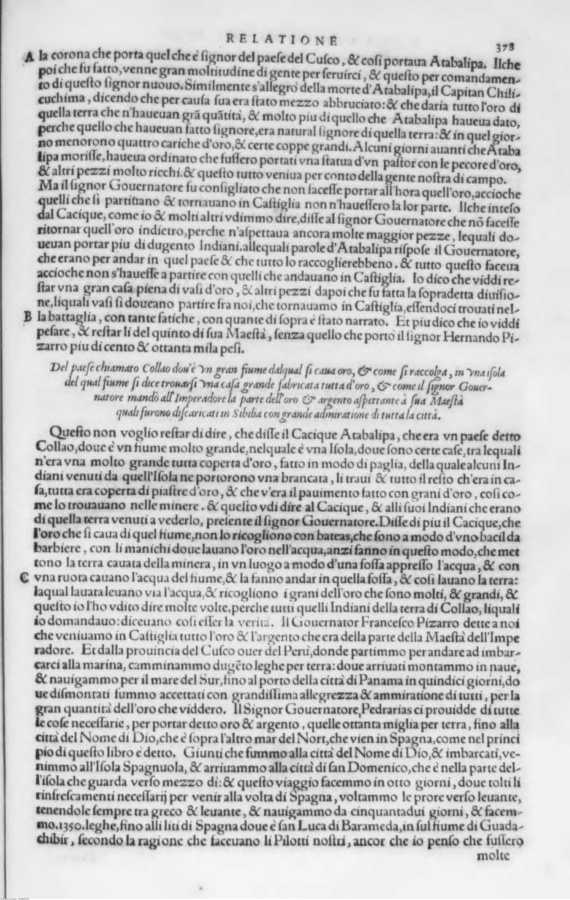 RELATIONE
378
A la corona che porta quel che è signor del paese del Cusco, & cosi portaua Atabalipa. Ilche
poi che fu fatto, venne gran moltitudine di gente per seruirci, & questo per comandamen-
to di questo signor nuouo. Similmente s'allegrò della morte d'Atabalipa, il Capitan Chili-
cuchima, dicendo che per causa sua era stato mezzo abbruciato: & che daria tutto l'oro di
quella terra che n'haueuan grã quãtità, & molto piu di quello che Atabalipa haueua dato,
perche quello che haueuan fatto signore, era natural signore di quella terra: & in quel gior-
no menorono quattro cariche d'oro, & certe coppe grandi. Alcuni giorni auanti che Ataba
lipa morisse, haueua ordinato che fussero portati vna statua d'vn pastor con le pecore d'oro,
& altri pezzi molto ricchi. & questo tutto veniua per conto della gente nostra di campo.
Ma il signor Gouernatore fu consigliato che non facesse portar all'hora quell'oro, accioche
quelli che si partiuano & tornauano in Castiglia non n'hauessero la lor parte. Ilche inteso
dal Cacique, come io & molti altri vdimmo dire, disse al signor Gouernatore che nõ facesse
ritornar quell'oro indietro, perche n'aspettaua ancora molte maggior pezze, lequali do-
ueuan portar piu di dugento Indiani. allequali parole d'Atabalipa rispose il Gouernatore,
che erano per andar in quel paese & che tutto lo raccoglierebbeno. & tutto questo faceua
accioche non s'hauesse a partire con quelli che andauano in Castiglia. Io dico che viddi re-
star vna gran casa piena di vasi d'oro, & altri pezzi dapoi che fu fatta la sopradetta diuisio-
ne, liquali vasi si doueano partire fra noi, che tornauamo in Castiglia, essendoci trouati nel-
B la battaglia, con tante fatiche, con quante di sopra è stato narrato. Et piu dico che io viddi
pesare, & restar lì del quinto di sua Maestà, senza quello che portò il signor Hernando Pi-
zarro piu di cento & ottanta mila pesi.
Del paese chiamato Collao dou'è vn gran fiume dalqual si caua oro, & come si raccolga, in vna isola
del qual fiume si dice trouarsi vna casa grande fabricata tutta d'oro, & come il signor Gouer-
natore mandò all'Imperadore la parte dell'oro & argento aspettante à sua Maestà
quali furono discaricati in Sibilia con grande admiratione di tutta la città.
Questo non voglio restar di dire, che disse il Cacique Atabalipa, che era vn paese detto
Collao, doue è vn fiume molto grande, nelquale è vna Isola, doue sono certe case, tra lequali
n'era vna molto grande tutta coperta d'oro, fatto in modo di paglia, della quale alcuni In-
diani venuti da quell'Isola ne portorono vna brancata, li traui & tutto il resto ch'era in ca-
sa, tutta era coperta di piastre d'oro, & che v'era il pauimento fatto con grani d'oro, cosi co-
me lo trouauano nelle minere. & questo vdi dire al Cacique, & alli suoi Indiani che erano
di quella terra venuti a vederlo, presente il signor Gouernatore. Disse di piu il Cacique, che
l'oro che si caua di quel fiume, non lo ricogliono con bateas, che sono a modo d'vno bacil da
barbiere, con li manichi doue lauano l'oro nell'acqua, anzi fanno in questo modo, che met
tono la terra cauata della minera, in vn luogo a modo d'vna fossa appresso l'acqua, & con
C vna ruota cauano l'acqua del fiume, & la fanno andar in quella fossa, & cosi lauano la terra:
laqual lauata leuano via l'acqua, & ricogliono i grani dell'oro che sono molti, & grandi, &
questo io l'ho vdito dire molte volte, perche tutti quelli Indiani della terra di Collao, liquali
io domandauo: diceuano cosi esser la verità. Il Gouernator Francesco Pizarro dette a noi
che veniuamo in Castiglia tutto l'oro & l'argento che era della parte della Maestà dell'Impe
radore. Et dalla prouincia del Cusco ouer del Perù, donde partimmo per andare ad imbar-
carci alla marina, camminammo dugẽto leghe per terra: doue arriuati montammo in naue,
& nauigammo per il mare del Sur, fino al porto della città di Panama in quindici giorni, do
ue dismontati fummo accettati con grandissima allegrezza & ammiratione di tutti, per la
gran quantità dell'oro che viddero. Il Signor Gouernatore, Pedrarias ci prouidde di tutte
le cose necessarie, per portar detto oro & argento, quelle ottanta miglia per terra, fino alla
città del Nome di Dio, che è sopra l'altro mar del Nort, che vien in Spagna, come nel princi
pio di questo libro è detto. Giunti che fummo alla città del Nome di Dio, & imbarcati, ve-
nimmo all'Isola Spagnuola, & arriuammo alla città di san Domenico, che è nella parte del-
l'isola che guarda verso mezzo dì: & questo viaggio facemmo in otto giorni, doue tolti li
rinfrescamenti necessarij per venir alla volta di Spagna, voltammo le prore verso leuante,
tenendole sempre tra greco & leuante, & nauigammo da cinquantadui giorni, & facem-
mo. 1350. leghe, fino alli liti di Spagna doue è san Luca di Barameda, in sul fiume di Guada-
chibir, secondo la ragione che faceuano li Pilotti nostri, ancor che io penso che fussero
molte